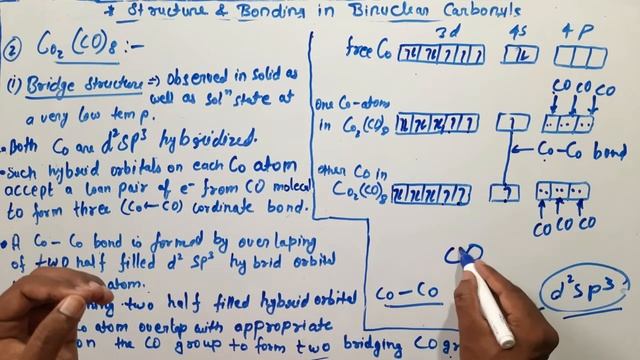 * Structure & Bonding in Binuclear Carbonyls
② Co₂(CO)₈:-
(i) Bridge Structure => observed in solid as
well as solⁿ state at
a very low temp.
• Both Co are d²sp³ hybridized.
• Such hybrid orbitals on each Co atom
accept a loan pair of e⁻ from CO molecul
to form three (Co←CO) cordinate bond.
• A Co-Co bond is formed by overlaping
of two half filled d² sp³ hybrid orbital
atom.
two half filled hybrid orbital
atom overlap with appropriate
on the CO group to form two bridging CO gr
3d 4s 4p
free Co
CO CO CO
one Co-atom
in Co₂(CO)₈
Co-Co bond
other Co in
Co₂(CO)₈
CO CO CO
CO
Co-Co
d²sp³